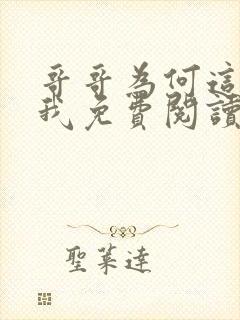 哥哥為何這
我免費閱讀
聖萊達